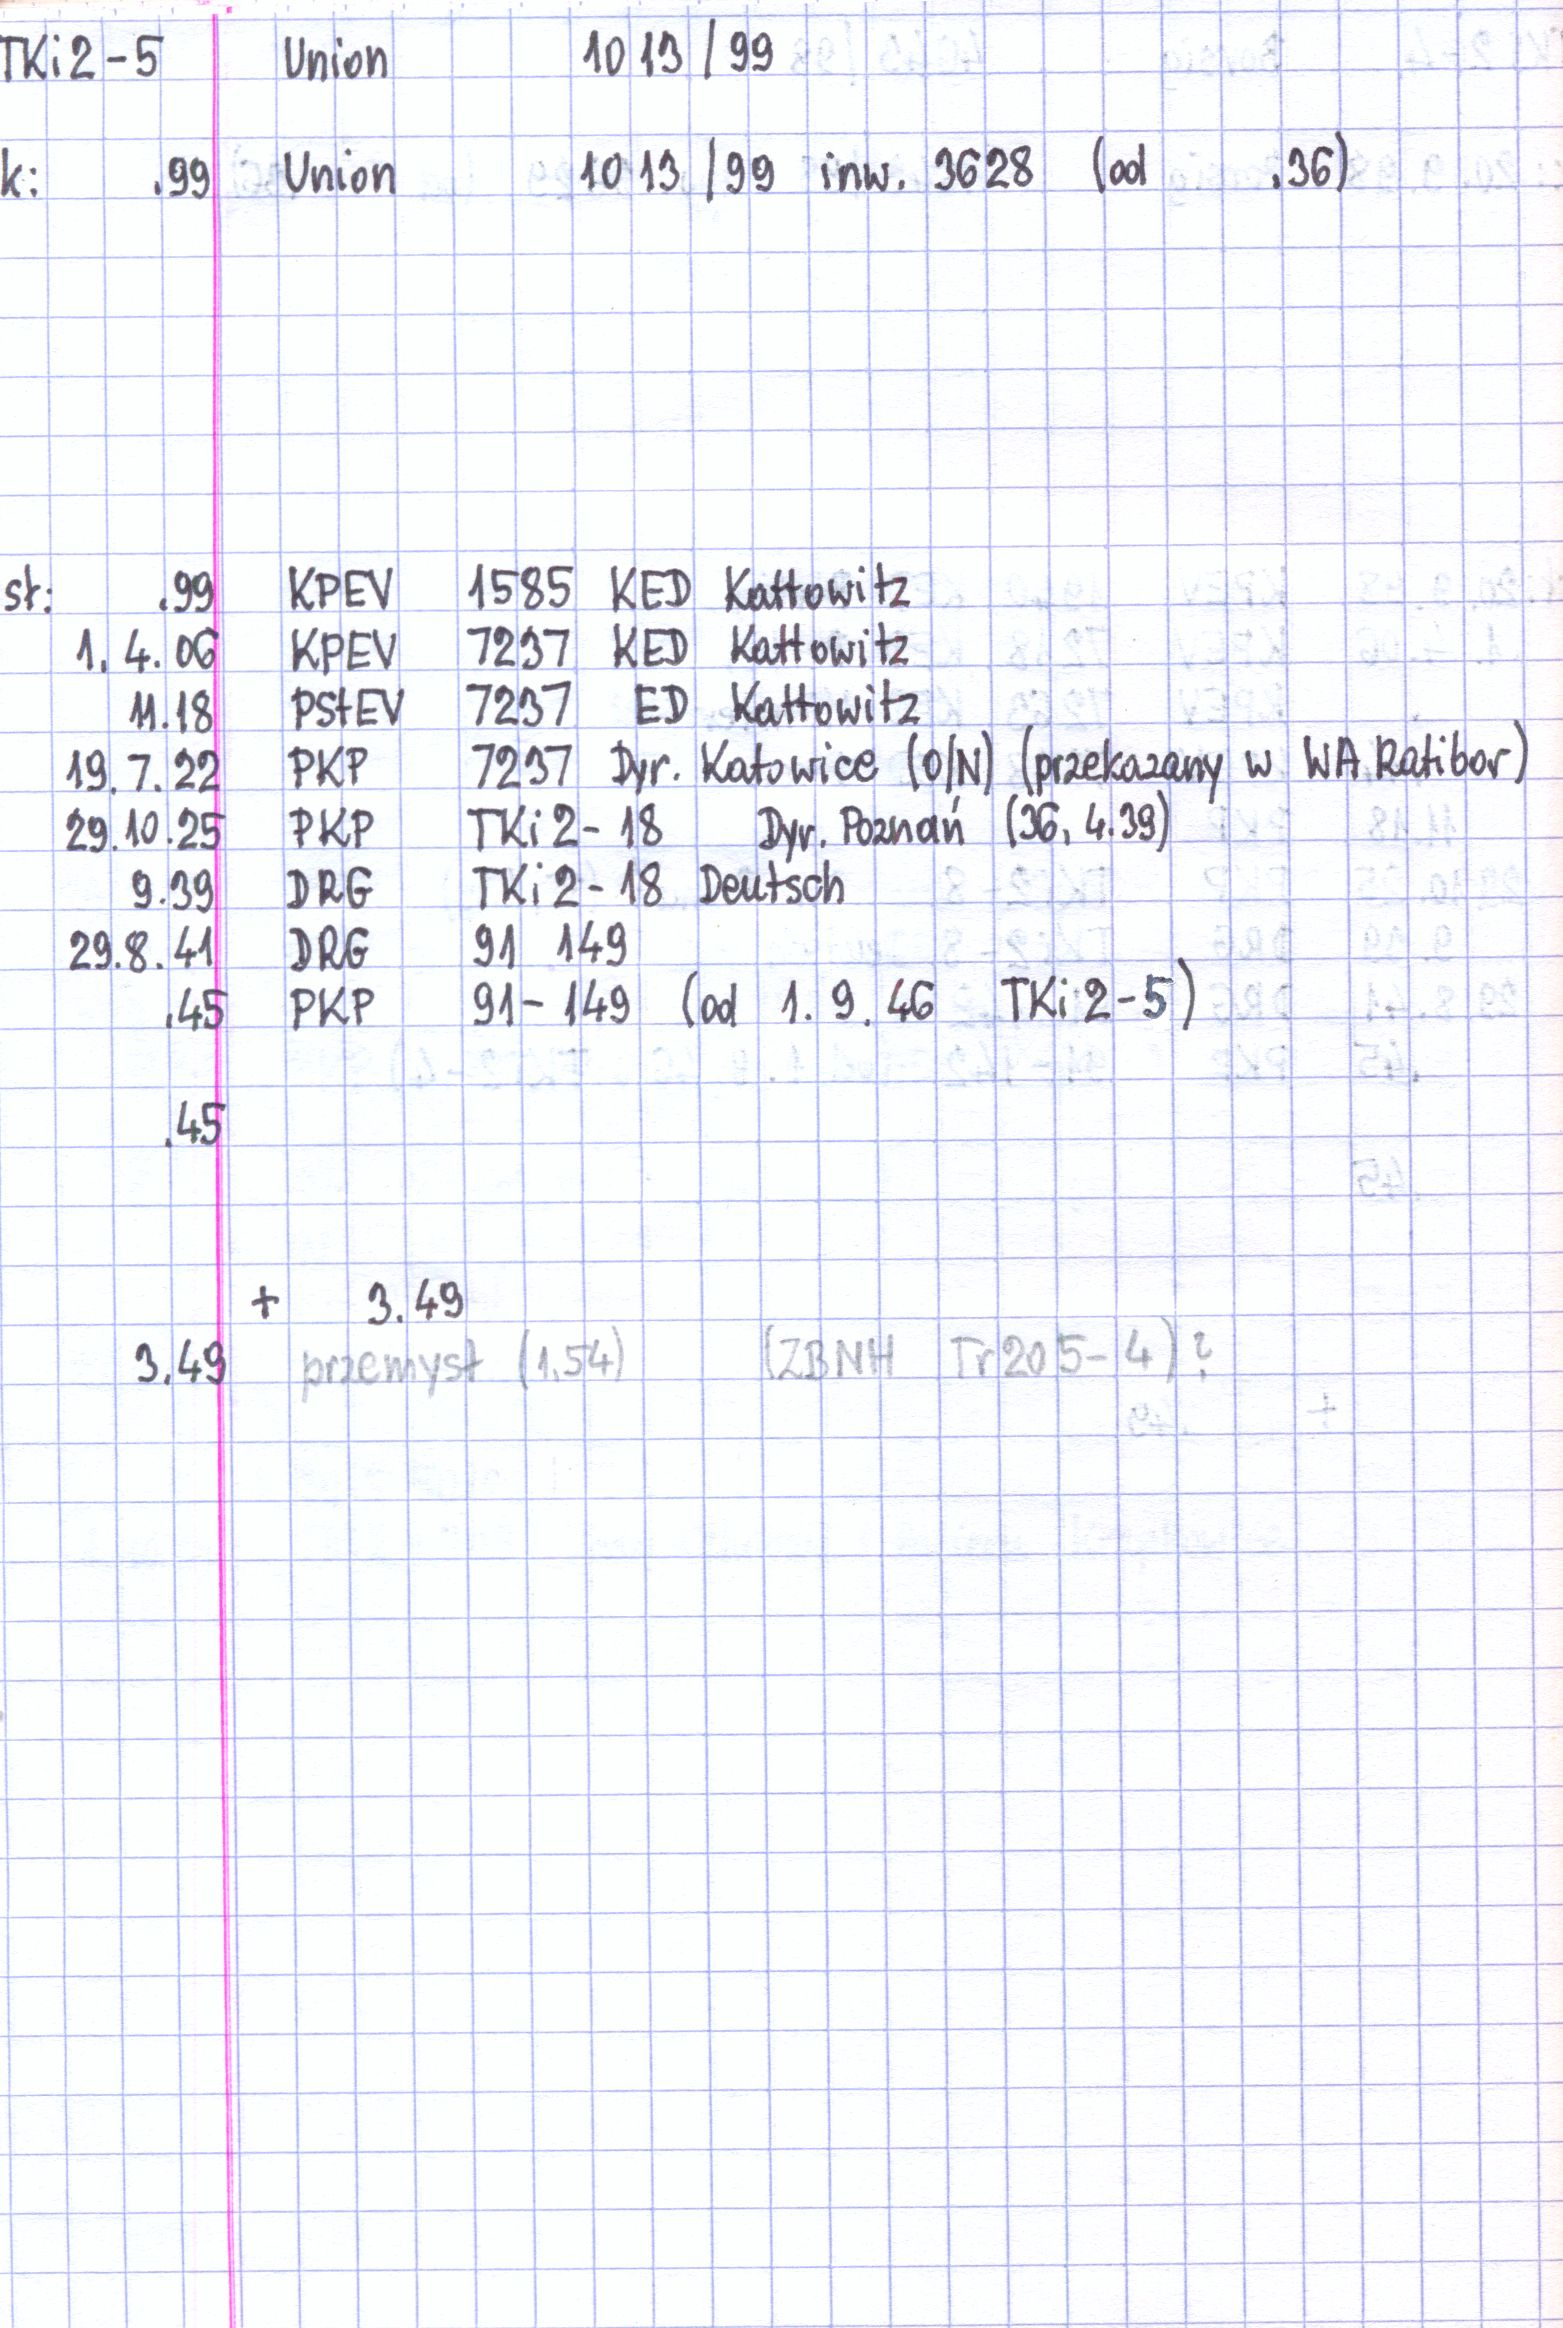 TKi2-5 Union 1013/99
k: .99 Union 1013/99 inw. 3628 (od .36)
st: .99 KPEV 1585 KED Kattowitz
1.4.06 KPEV 7237 KED Kattowitz
11.18 PStEV 7237 ED Kattowitz
19.7.22 PKP 7237 Dyr. Katowice (O/N) (przekazany w WA Ratibor)
29.10.25 PKP TKi2-18 Dyr. Poznań (36, 4.39)
9.39 DRG TKi2-18 Deutsch
29.8.41 DRG 91 149
.45 PKP 91-149 (od 1.9.46 TKi2-5)
.45
+ 3.49
3.49 przemysł (1.54) (ZBNH Tr205-4)?